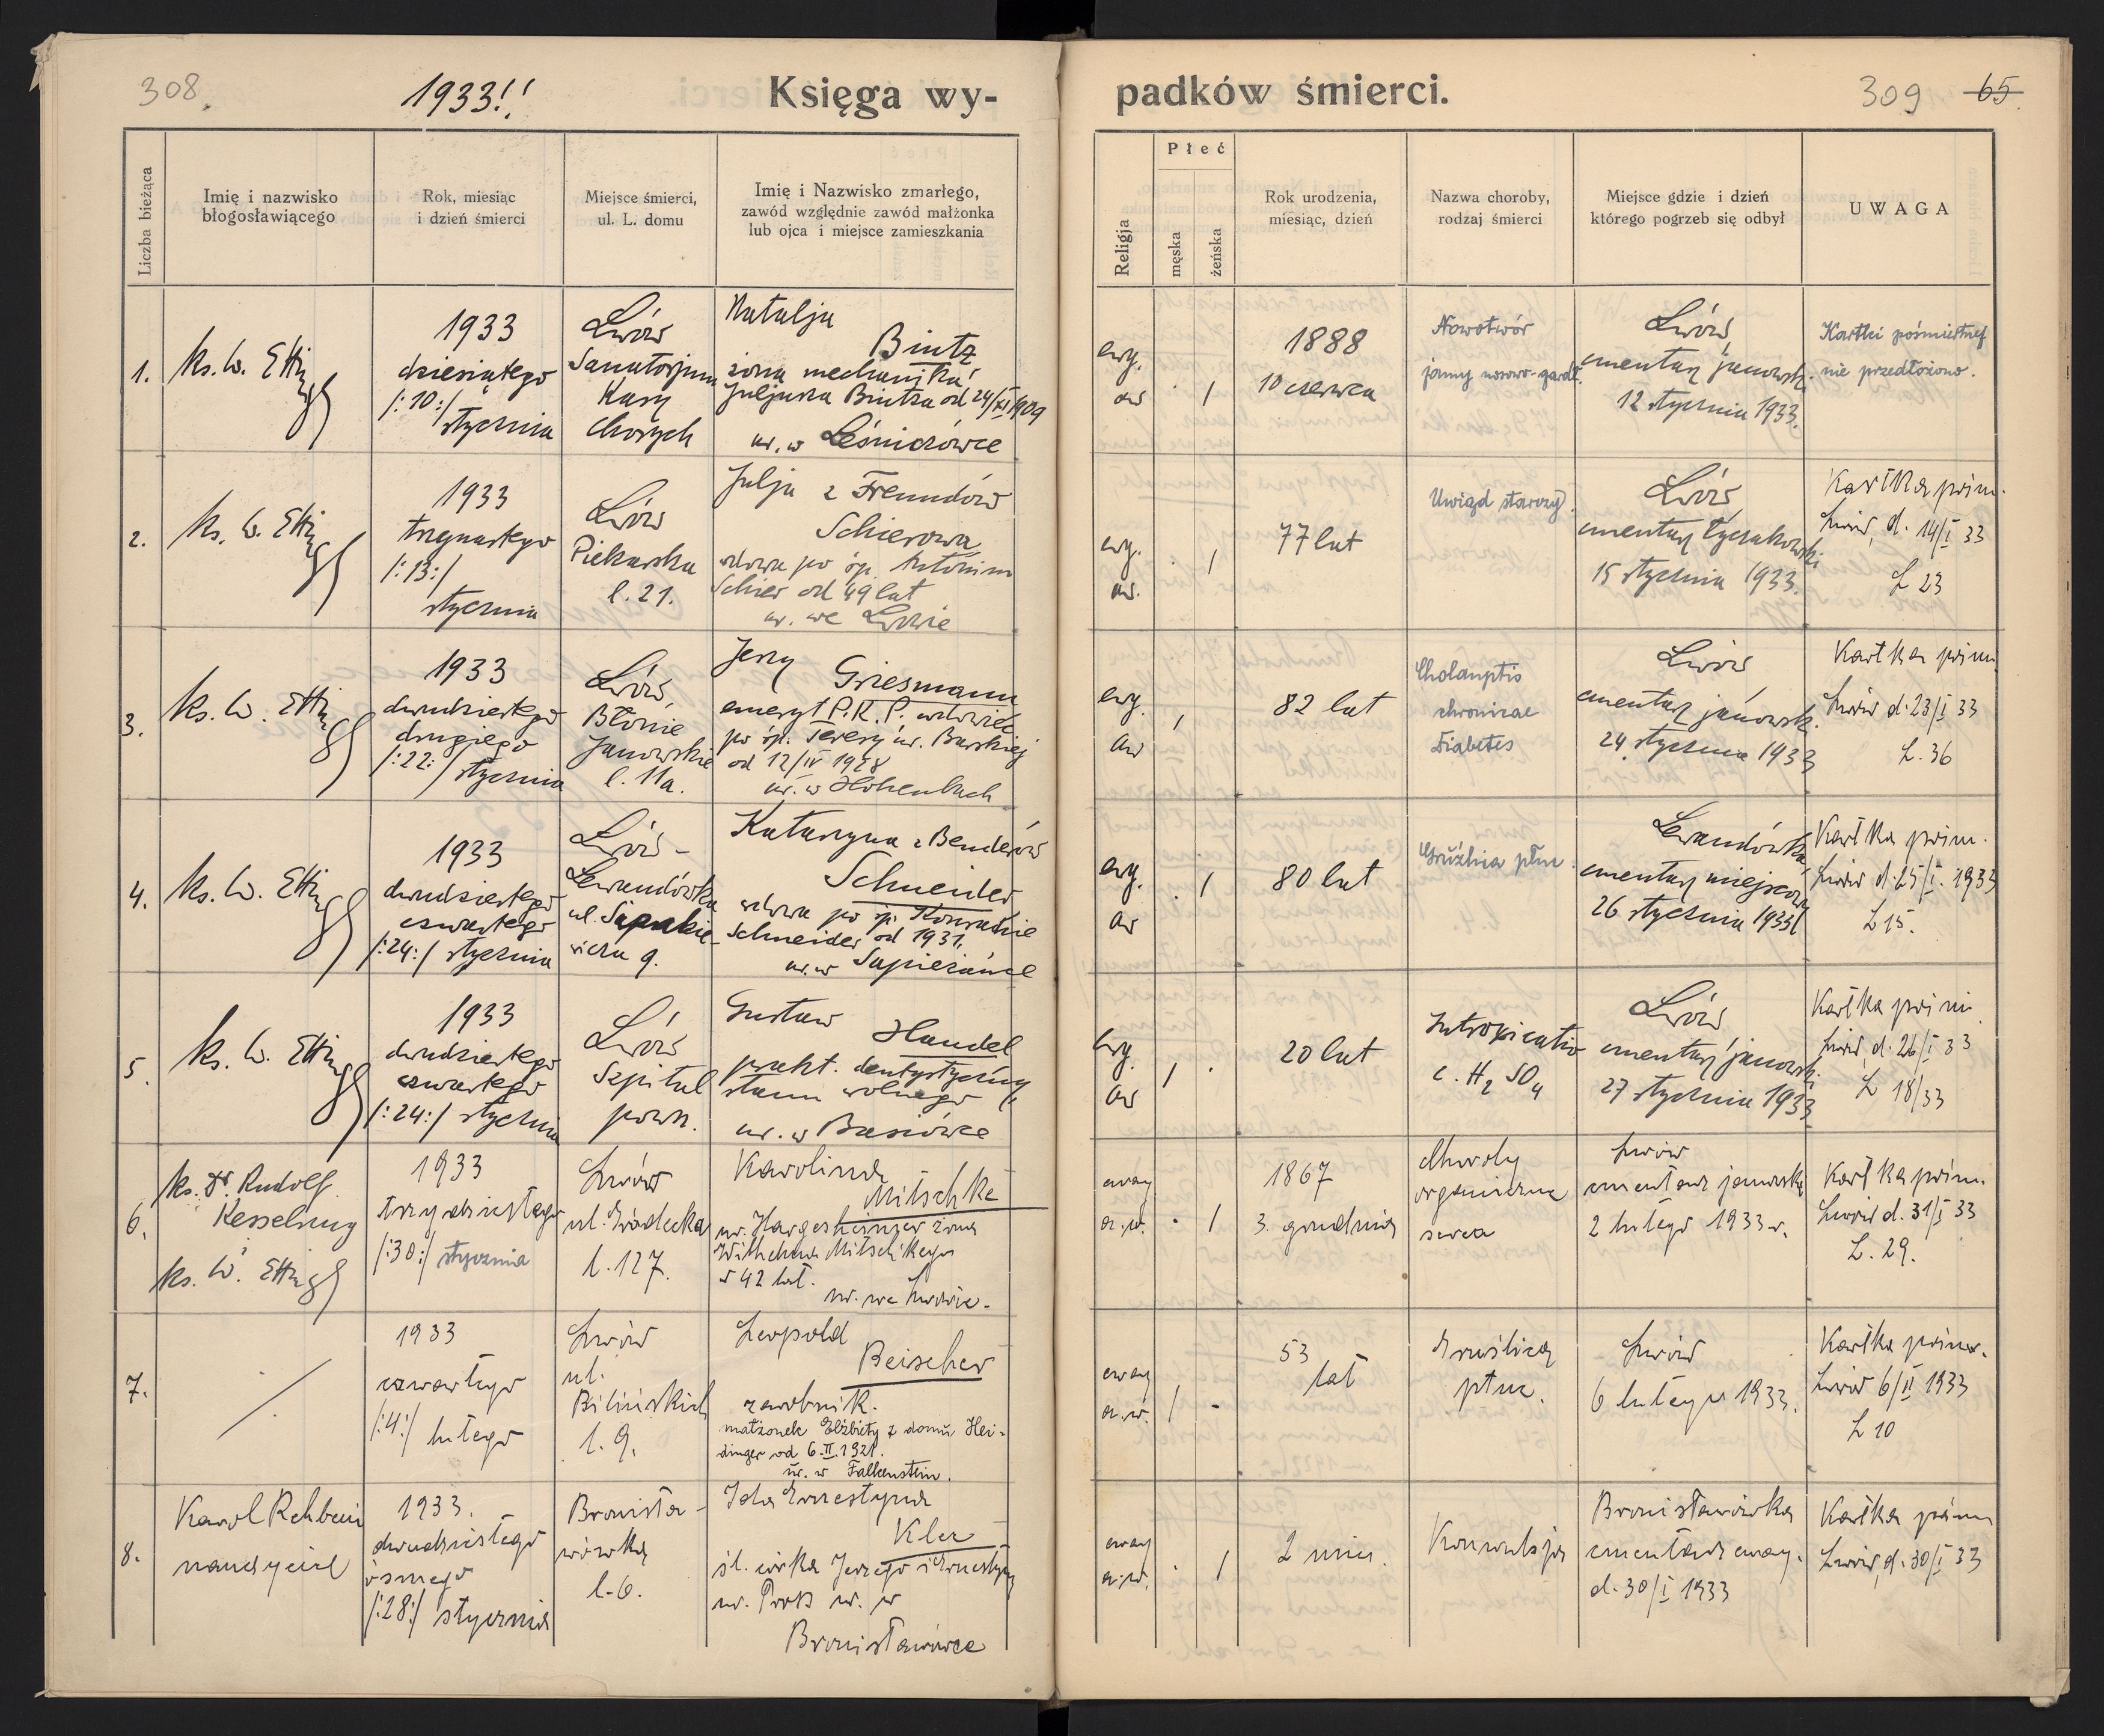 308.
1933!!
Księga wy-
padków śmierci.
309
65
Liczba bieżąca
Imię i nazwisko
błogosławiącego
Rok, miesiąc
i dzień śmierci
Miejsce śmierci,
ul. L. domu
Imię i Nazwisko zmarłego,
zawód względnie zawód małżonka
lub ojca i miejsce zamieszkania
Religja
Płeć
męska
żeńska
Rok urodzenia,
miesiąc, dzień
Nazwa choroby,
rodzaj śmierci
Miejsce gdzie i dzień
którego pogrzeb się odbył
UWAGA
1.
ks. W. Etting
1933
dziesiątego
/:10:/
stycznia
Lwów
Sanatorjum
Kasy
Chorych
Natalja
Bintz
żona mechanika
Juljusza Bintza od 24/XI 1909
ur. w Leśniczówce
ewg.
aw
. /
1888
10 czerwca
Nowotwór
jamy nosowo-gardł.
Lwów,
cmentarz janowski
12 stycznia 1933.
Kartki pośmiertnej
nie przedłożono.
2.
ks. W. Etting
1933
trzynastego
/:13:/
stycznia
Lwów
Piekarska
l. 21.
Julja z Freundów
Schierowa
wdowa po śp. Antonim
Schier od 49 lat
ur. we Lwowie
ewg.
aw.
. /
77 lat
Uwiąd starczy.
Lwów,
cmentarz łyczakowski
15 stycznia 1933.
Kartka pośm.
Lwów, d. 14/I 33
L 23
3.
ks. W. Etting
1933
dwudziestego
drugiego
/:22:/ stycznia
Lwów,
Błonie
Janowskie
l. 11a.
Jerzy
Griesmann
emeryt P.K.P. wdowiec
po śp. Teresy ur. Burskiej
od 12/IV 1928
ur. w Hohenbach
ewg.
aw
/
82 lat
chronicae
Diabetes
Lwów
cmentarz janowski.
24 stycznia 1933
Kartka pośm
Lwów d. 23/I 33
L. 36
4.
ks. W. Etting
1933
dwudziestego
czwartego
/:24:/ stycznia
Lwów-
Lewandówka
ul. Sapakie-
wicza 9.
Katarzyna z Benderów
Schneider
wdowa po śp. Konradzie
Schneider od 1931.
ur. w Sapieżance
ewg.
aw
. /
80 lat
Gruźlica płuc.
Lewandówka
cmentarz miejscowy
26 stycznia 1933
Kartka pośm.
Lwów d. 25/I. 1933
L 15.
5.
ks. W. Etting
1933
dwudziestego
czwartego
/:24:/ stycznia
Lwów
Szpital
powsz.
Gustaw
Handel
prakt. dentystyczny,
stanu wolnego
ur. w Basiówce
ewg.
aw
/ .
20 lat
Intoxicatio
c. H2 SO4
Lwów
cmentarz janowski.
27 stycznia 1933
Kartka pośm.
Lwów, d. 26/I 33
L 18/33
6.
ks. Dr. Rudolf
Kesselring
ks. W. Etting
1933
trzydziestego
/:30:/ stycznia
Lwów
ul. Gródecka
l. 127.
Karolina
Mitschke
ur. Hargesheimer żona
Wilhelma Mitschkego
s 42 lat.
ur. we Lwowie.
ewag
a.w.
. /
1867
3. grudnia
Choroby
organiczne
serca
Lwów
cmentarz janowski
2 lutego 1933 r.
Kartka pośm.
Lwów d. 31/I 33
L. 29.
7.
/
1933
czwartego
/:4:/ lutego
Lwów
ul.
Bilińskich
l. 9.
Leopold
Beischer
zarobnik.
małżonek Elżbiety z domu Hei-
dinger od 6.II.1921.
ur. w Falkenstein.
ewag
a.w.
/ .
53
lat
Gruźlica
płuc.
Lwów
6 lutego 1933.
Kartka pośm.
Lwów 6/II 1933
L 10
8.
Karol Rehbein
nauczyciel
1933.
dwudziestego
ósmego
/:28:/ stycznia
Bronisła-
wówka
l. 6.
Ida Ernestyna
Kler
śl. córka Jerzego i Ernestyny
ur. w
Bronisławówce
ewag
a.w.
. /
2 mies.
Konwulsja
Bronisławówka
cmentarz ewag.
d. 30/I 1933
Kartka pośm
Lwów, d. 30/I 33